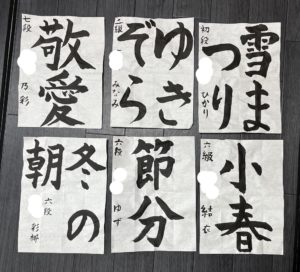 雪ま
つり
初段 ひかり
ゆき
ぞら
二級 みなみ
敬愛
七段 乃彩
小春
六級 結衣
節分
六段 ゆず
冬の
朝
六段